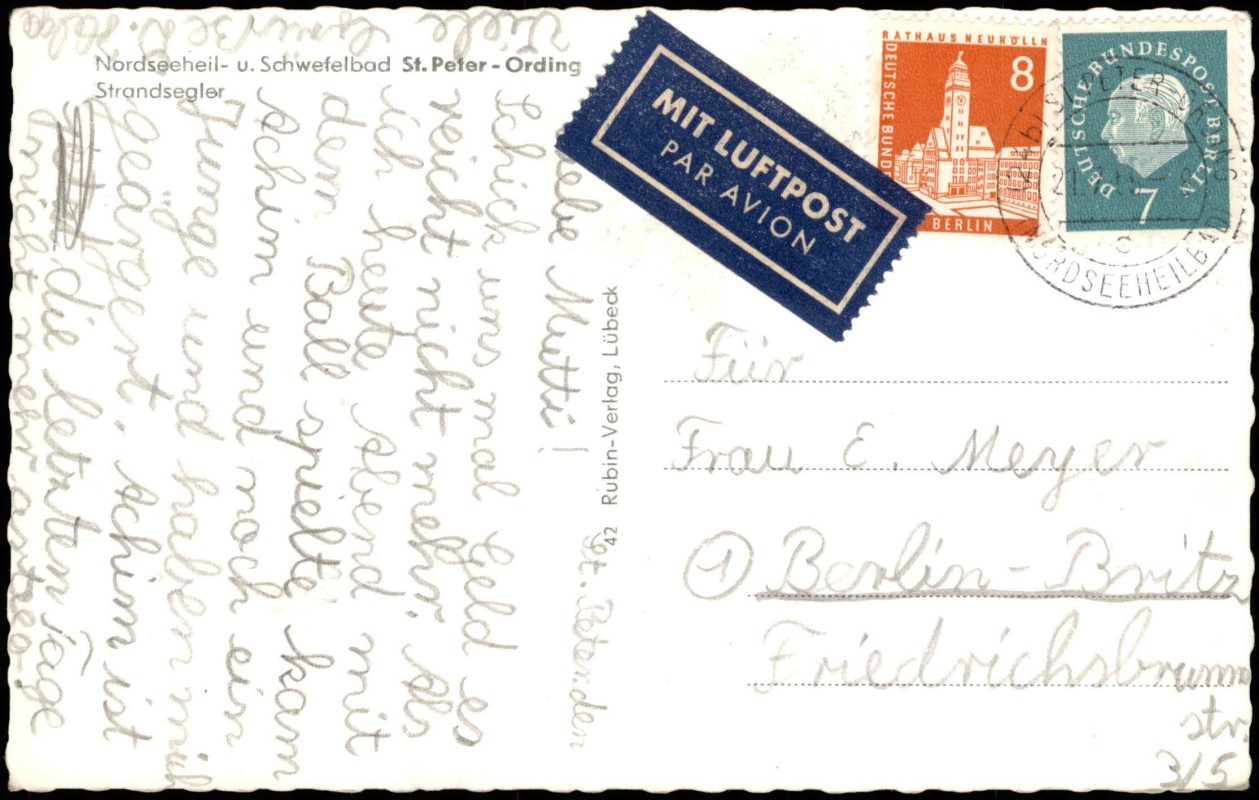 Nordseeheil- u. Schwefelbad St. Peter-Ording
Strandsegler
St. Peter den
Liebe Mutti!
Schick uns mal Geld es
reicht nicht mehr, als
ich heute Abend mit
dem Ball spielte kam
Achim und noch ein
Junge und haben mich
geärgert. Achim ist
die letzten Tage
nicht mehr artig
Viele
Grüße D. Helga
42 Rubin-Verlag, Lübeck
MIT LUFTPOST
PAR AVION
RATHAUS NEUKÖLLN
8
DEUTSCHE BUND
BERLIN
DEUTSCHE BUNDESPOST BERLIN
7
ST. PETER-ORDING
NORDSEEHEILBAD
Für
Frau E. Meyer
① Berlin-Britz
Friedrichsbrunn
str.
3/5